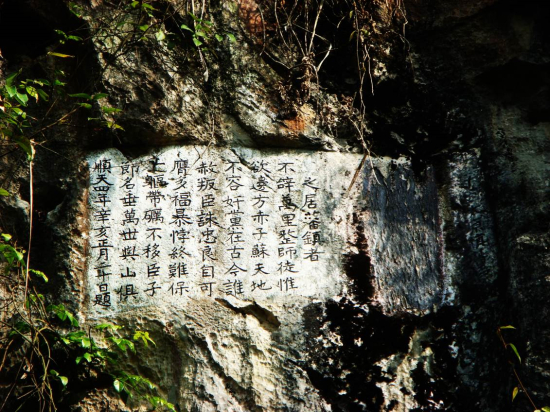 之居藩鎮者
不辞萬里整師徒惟
欲邊方赤子蘇天地
不容奸黨在古今誰
赦叛臣誅忠良自可
膺多福暴悖終難保
一軀帶礪不移臣子
節名垂萬世與山俱
順天四年辛亥正月二十日題